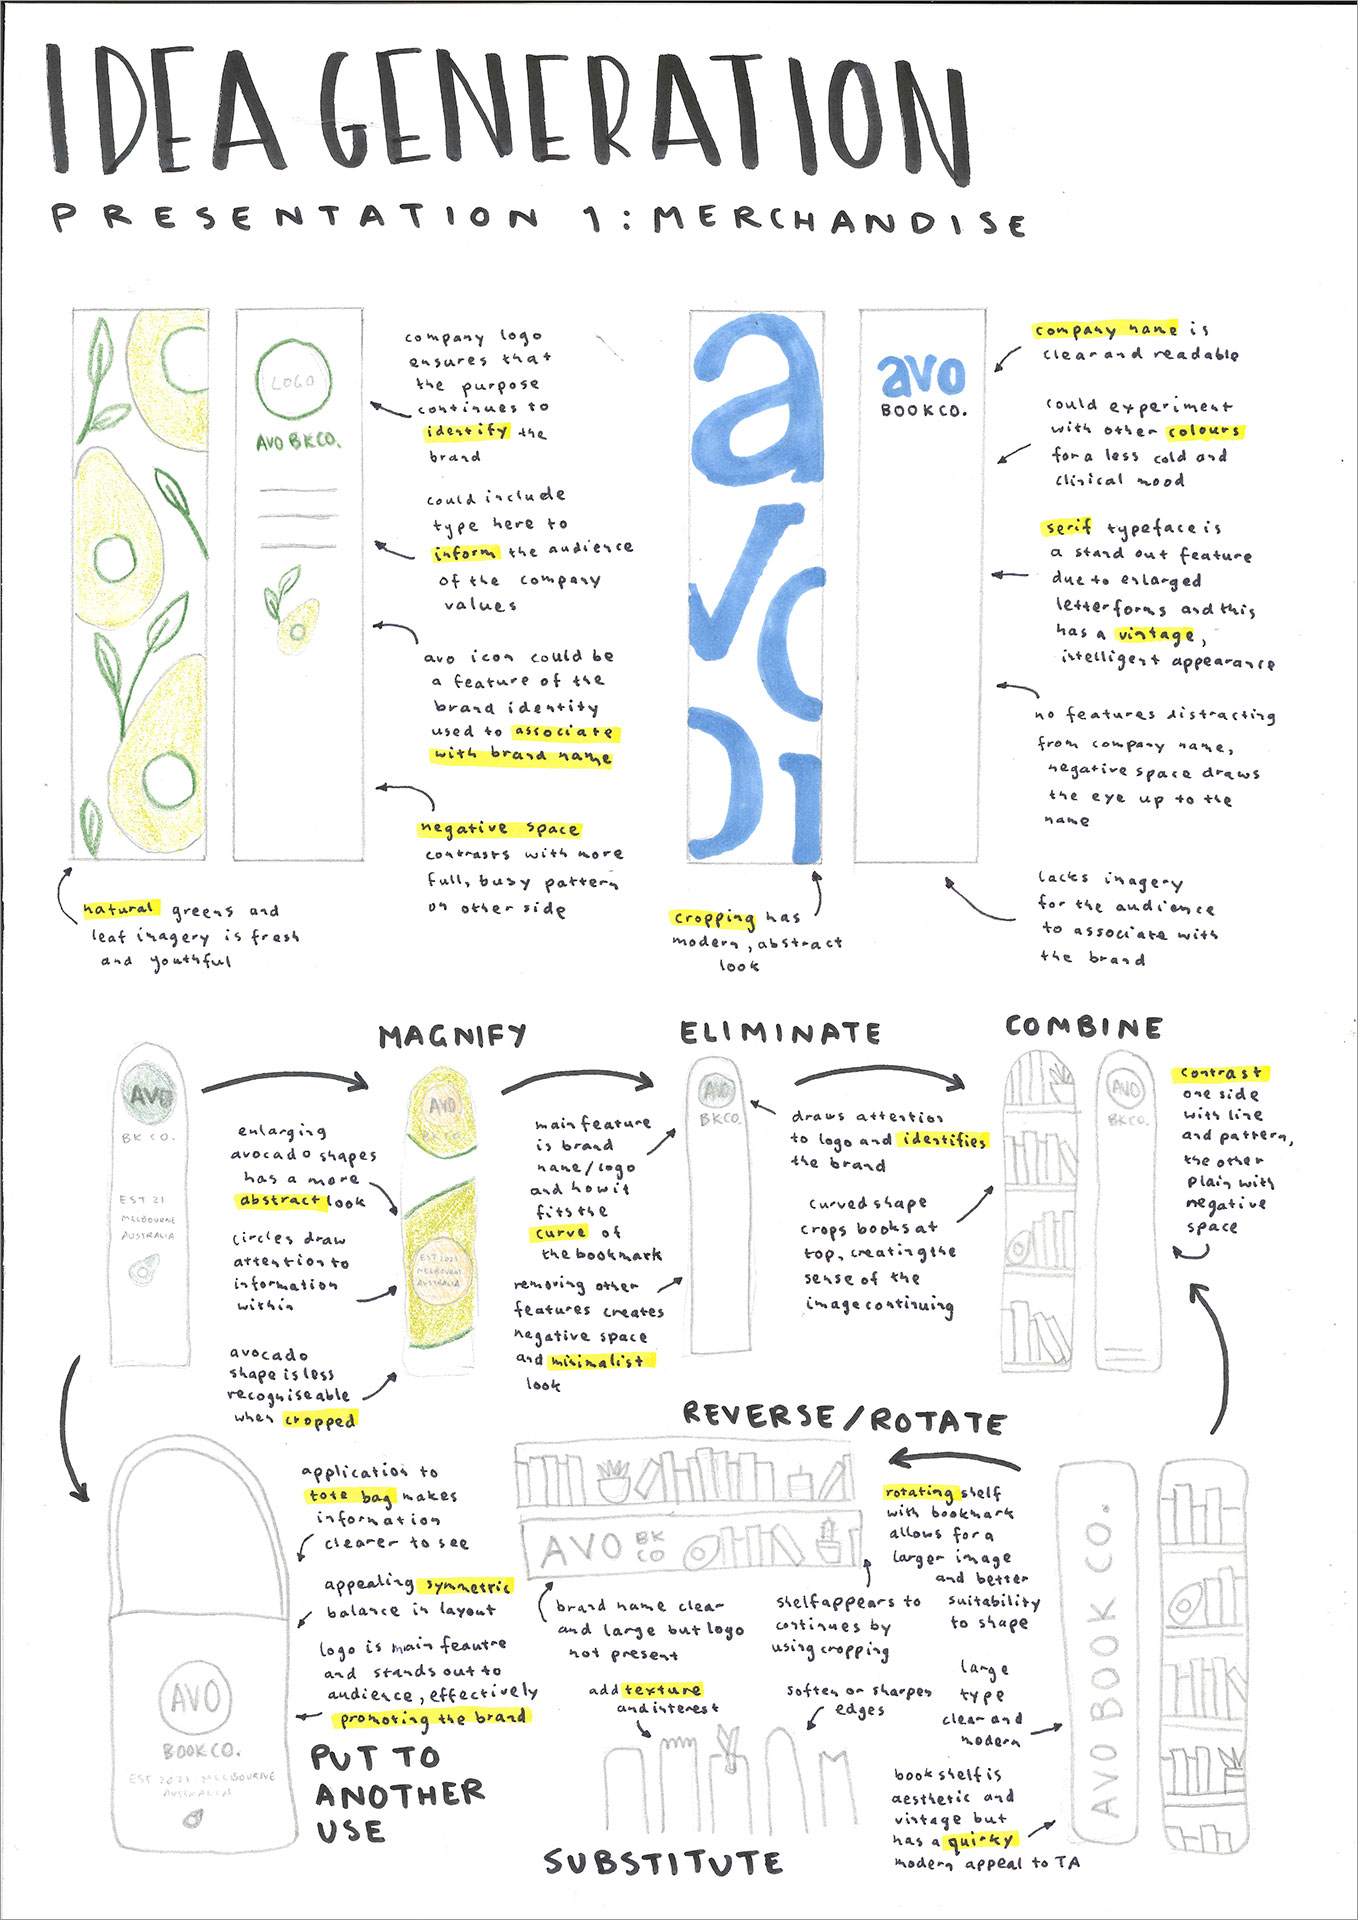 IDEA GENERATION
PRESENTATION 1: MERCHANDISE
LOGO
AVO BKCO.
company logo
ensures that
the purpose
continues to
identify the
brand
could include
type here to
inform the audience
of the company
values
avo icon could be
a feature of the
brand identity
used to associate
with brand name
negative space
contrasts with more
full, busy pattern
on other side
natural greens and
leaf imagery is fresh
and youthful
a
vo
avo
BOOKCO.
company name is
clear and readable
could experiment
with other colours
for a less cold and
clinical mood
serif typeface is
a stand out feature
due to enlarged
letterforms and this
has a vintage,
intelligent appearance
no features distracting
from company name,
negative space draws
the eye up to the
name
lacks imagery
for the audience
to associate with
the brand
cropping has
modern, abstract
look
MAGNIFY
ELIMINATE
COMBINE
AVO
BK CO.
EST 21
MELBOURNE
AUSTRALIA
enlarging
avocado shapes
has a more
abstract look
circles draw
attention to
information
within
avocado
shape is less
recogniseable
when cropped
AVO
BK CO.
EST 2021
MELBOURNE
AUSTRALIA
main feature
is brand
name/logo
and how it
fits the
curve of
the bookmark
removing other
features creates
negative space
and minimalist
look
AVO
BKCO.
draws attention
to logo and identifies
the brand
curved shape
crops books at
top, creating the
sense of the
image continuing
AVO
BKCO.
contrast
one side
with line
and pattern,
the other
plain with
negative
space
REVERSE/ROTATE
application to
tote bag makes
information
clearer to see
appealing symmetric
balance in layout
logo is main feautre
and stands out to
audience, effectively
promoting the brand
AVO
BOOKCO.
EST 2021. MELBOURNE
AUSTRALIA
PUT TO
ANOTHER
USE
AVO BK
CO
brand name clear
and large but logo
not present
shelf appears to
continues by
using cropping
rotating shelf
with bookmark
allows for a
larger image
and better
suitability
to shape
add texture
and interest
soften or sharpen
edges
SUBSTITUTE
large
type
clear and
modern
bookshelf is
aesthetic and
vintage but
has a quirky
modern appeal to TA
AVO BOOK CO.